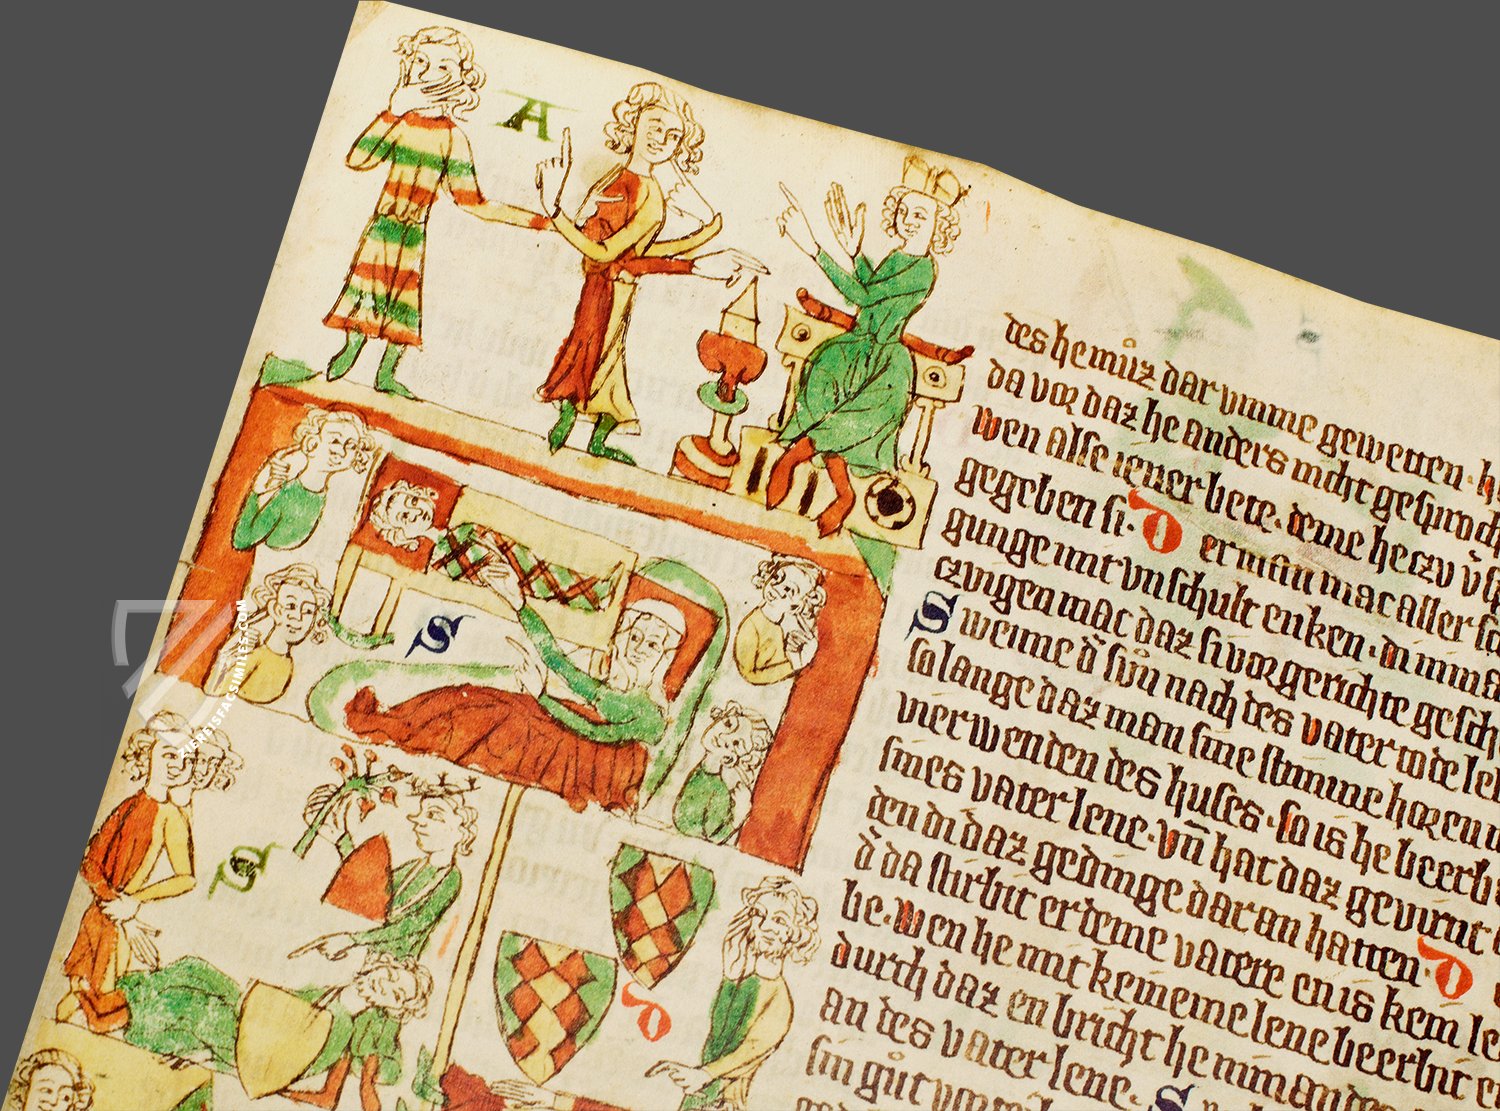 A
S
S
D
des he můz dar vmme gewetten · h
da vor daz he anders nicht gesproch
wen alse iener bete. deme he czu
gegeben si. D er man mac aller
gunge mit vnschult enken.
czugen mac daz si vor gerichte gesch
Swenne d' svn nach des vater tode leb
so lange daz man sine stimme horen
vier wenden des huses. so is he beerb
sines vater lene. vn̄ hat daz gevirnt
den di daz gedinge dar an hatten. D
d' da stirbit er deme vatere en is kein le
be. wen he mit keineme lene beerbit
durch daz en bricht he nimande
an des vater lene. S
sin gůt
ZIEREISFACSIMILES.COM